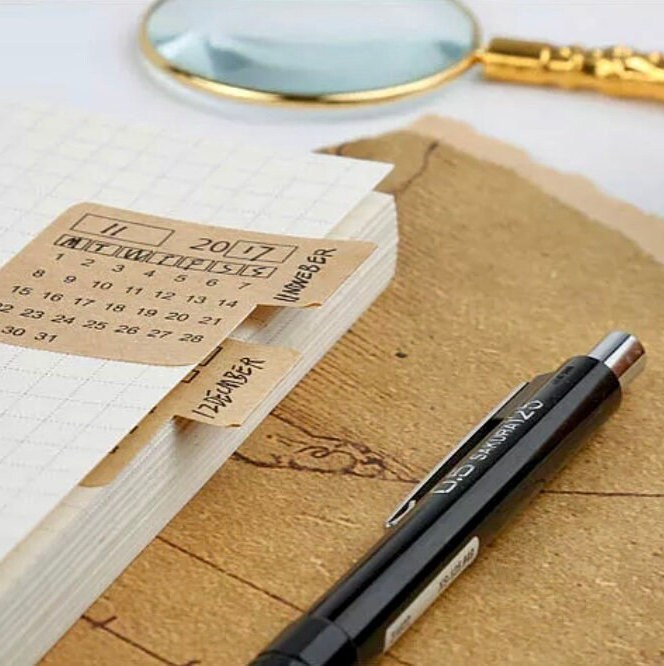 11 2017
M T W T F S S
1 2 3 4 5 6 7
8 9 10 11 12 13 14
15 16 17 18 19 20 21
22 23 24 25 26 27 28
30 31
11NOWEBER
12DECMBER
0.5 SAKURA 125